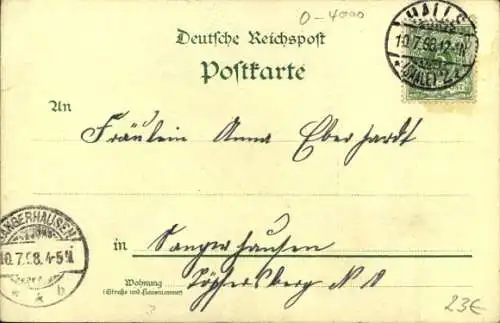 O-4000
HALLE
10.7.98.12-1N
(SAALE) 2
Deutsche Reichspost
Postkarte
An
Fräulein Anna Eberhardt
SANGERHAUSEN
10.7.98.4-5N
in Sangerhausen
Wohnung
(Straße und Hausnummer)
Töpfersberg N
23€